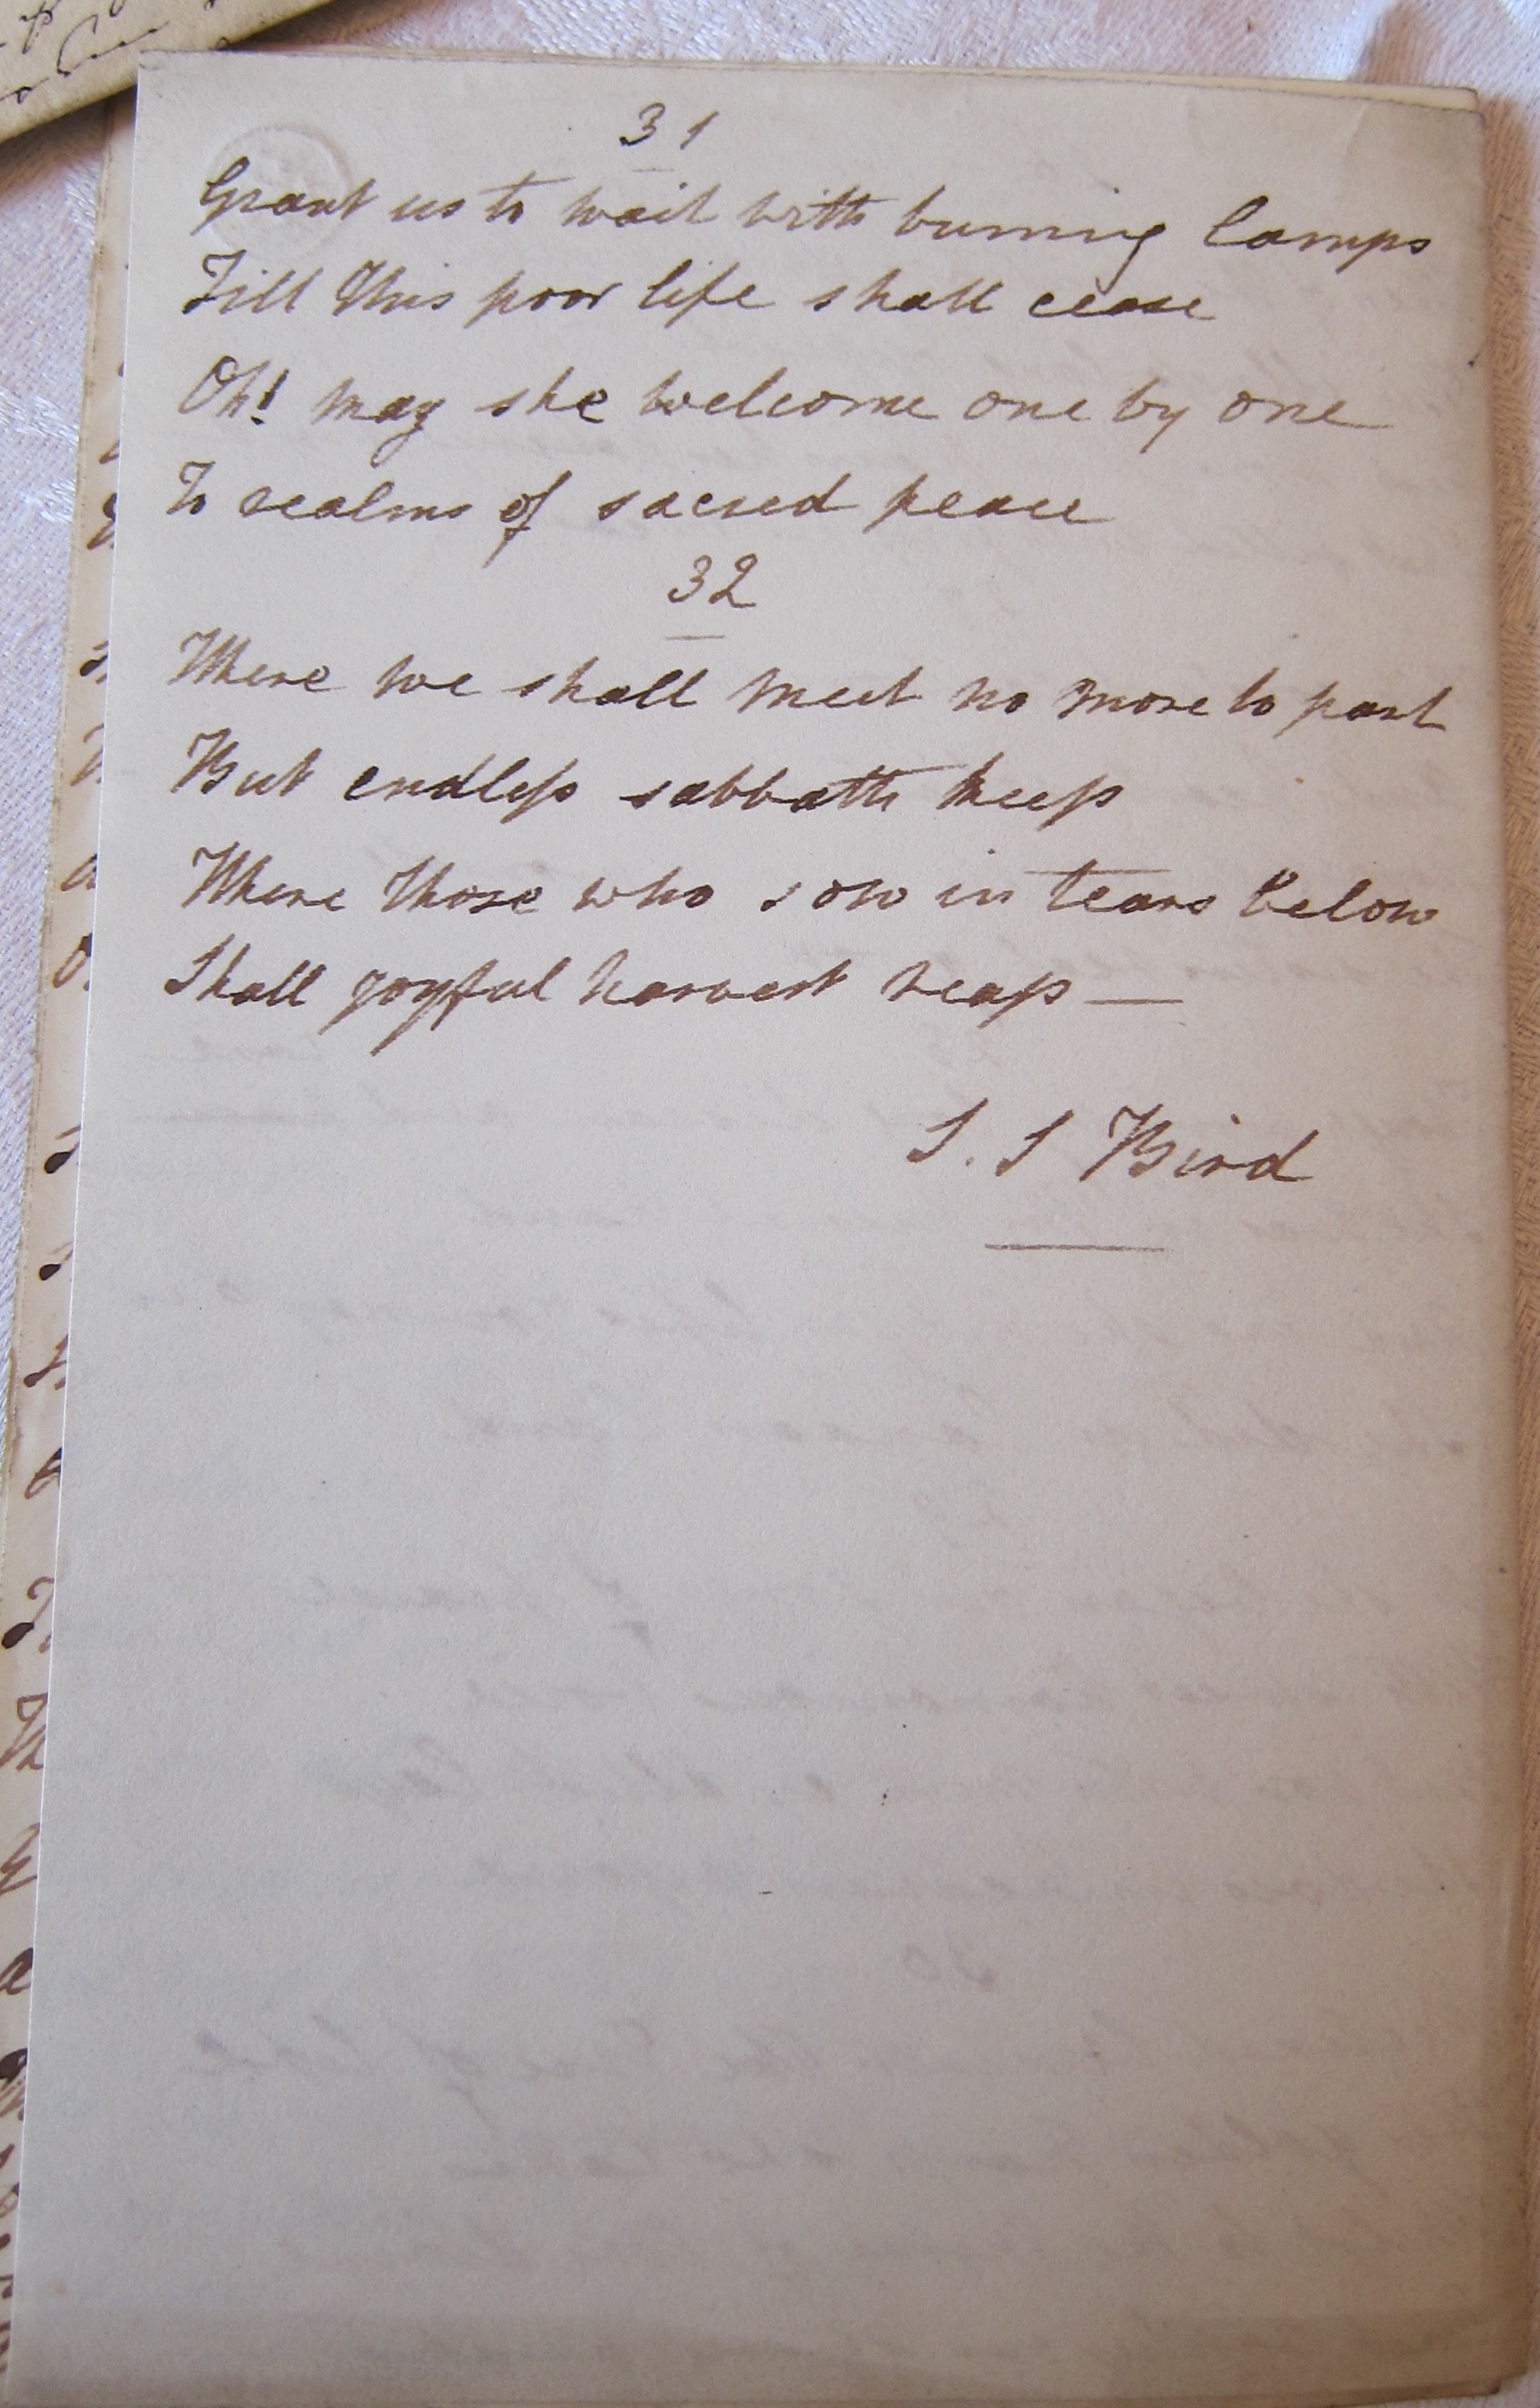 31
Grant us to wait with burning lamps
Till this poor life shall cease
Oh! may she welcome one by one
To realms of sacred peace
32
Where we shall meet no more to part
But endleſs sabbath keep
Where those who sow in tears below
Shall joyful harvest reap —
S. S Bird